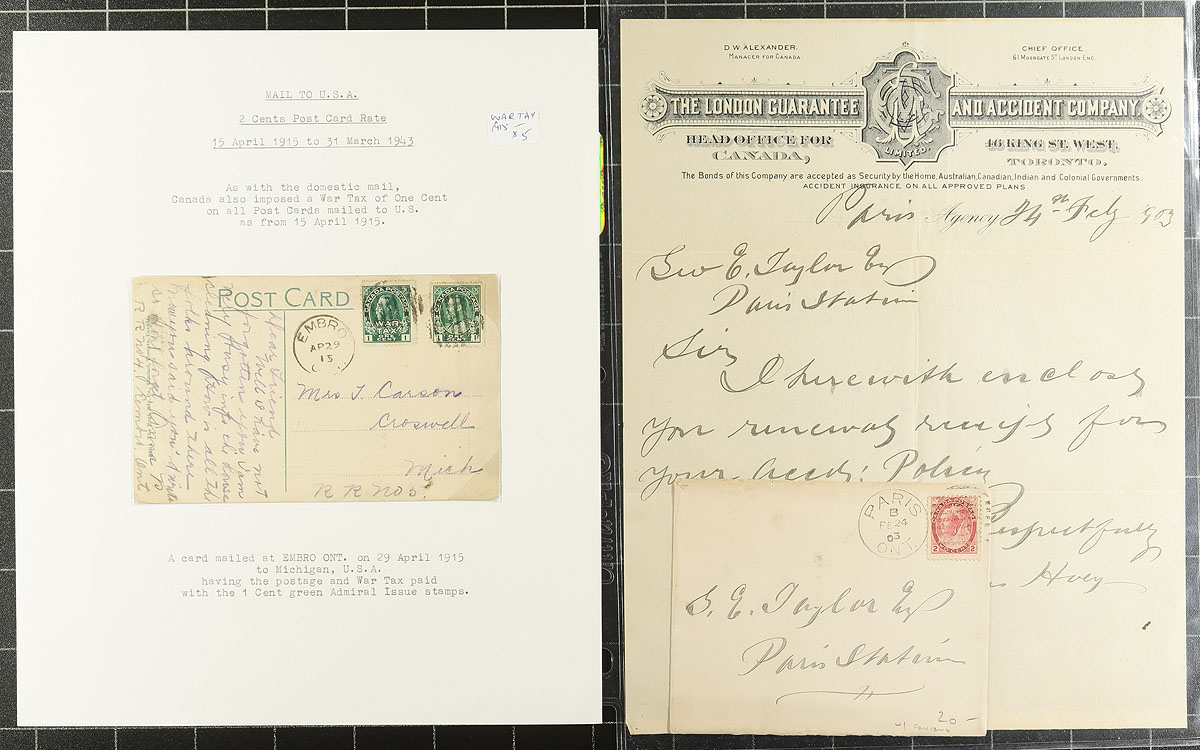 MAIL TO U.S.A.
2 Cents Post Card Rate
15 April 1915 to 31 March 1943
WAR TAX
1915
$5
As with the domestic mail,
Canada also imposed a War Tax of One Cent
on all Post Cards mailed to U.S.
as from 15 April 1915.
POST CARD
CANADA POSTAGE
WAR
TAX
1 1
EMBRO
AP 29
15
Mrs T. Carson
Croswell
Mich
R R No 5.
Dear Friend
Well I have not
forgotten you
busy
all the
A card mailed at EMBRO ONT. on 29 April 1915
to Michigan, U.S.A.
having the postage and War Tax paid
with the 1 Cent green Admiral Issue stamps.
D.W. ALEXANDER.
MANAGER FOR CANADA.
CHIEF OFFICE.
61 MOORGATE ST LONDON ENG.
THE LONDON GUARANTEE AND ACCIDENT COMPANY
LIMITED
HEAD OFFICE FOR
CANADA,
46 KING ST. WEST,
TORONTO.
The Bonds of this Company are accepted as Security by the Home, Australian, Canadian, Indian and Colonial Governments.
ACCIDENT INSURANCE ON ALL APPROVED PLANS
Paris Agency 24th Feby 1903
Geo E. Taylor Esq
Paris Station
Sir
I herewith enclose
you renewal receipt for
your Accdt Policy
Respectfully
Hoey
PARIS
B
FE 24
03
ONT.
2 2
G. E. Taylor Esq
Paris Station
20 –